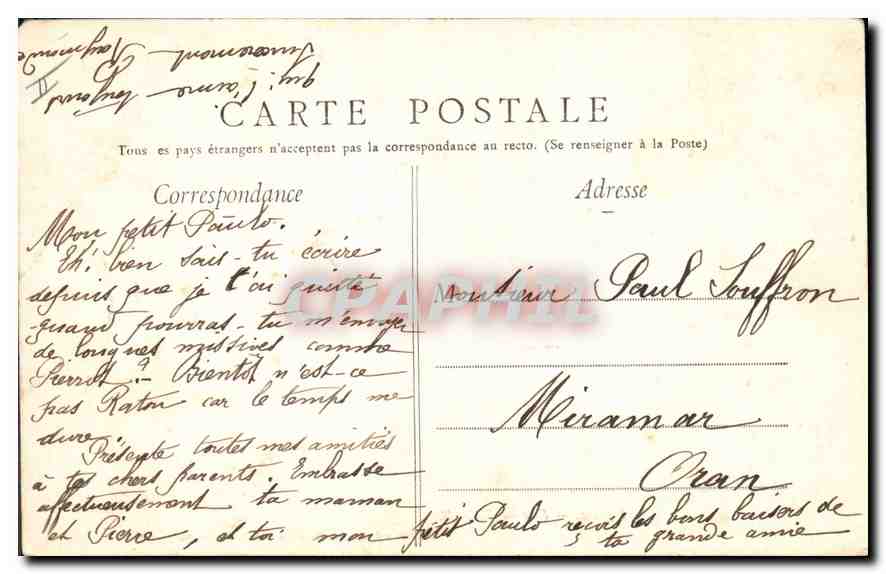 CARTE POSTALE
Tous es pays étrangers n'acceptent pas la correspondance au recto. (Se renseigner à la Poste)
Correspondance
Mon petit Paulo.
Eh! bien sais-tu écrire
depuis que je t'ai quitté
quand pourras-tu m'envoyer
de longues missives comme
Pierrot? - Bientôt n'est-ce
pas Raton car le temps me
dure
Présente toutes mes amitiés
à tes chers parents. Embrasse
affectueusement ta maman
et Pierre, et toi mon petit Paulo reçois les bons baisers de
ta grande amie
qui t'aime toujours
tendrement Raymonde
II
Adresse
Monsieur Paul Souffron
Miramar
Oran
CPAPHIL